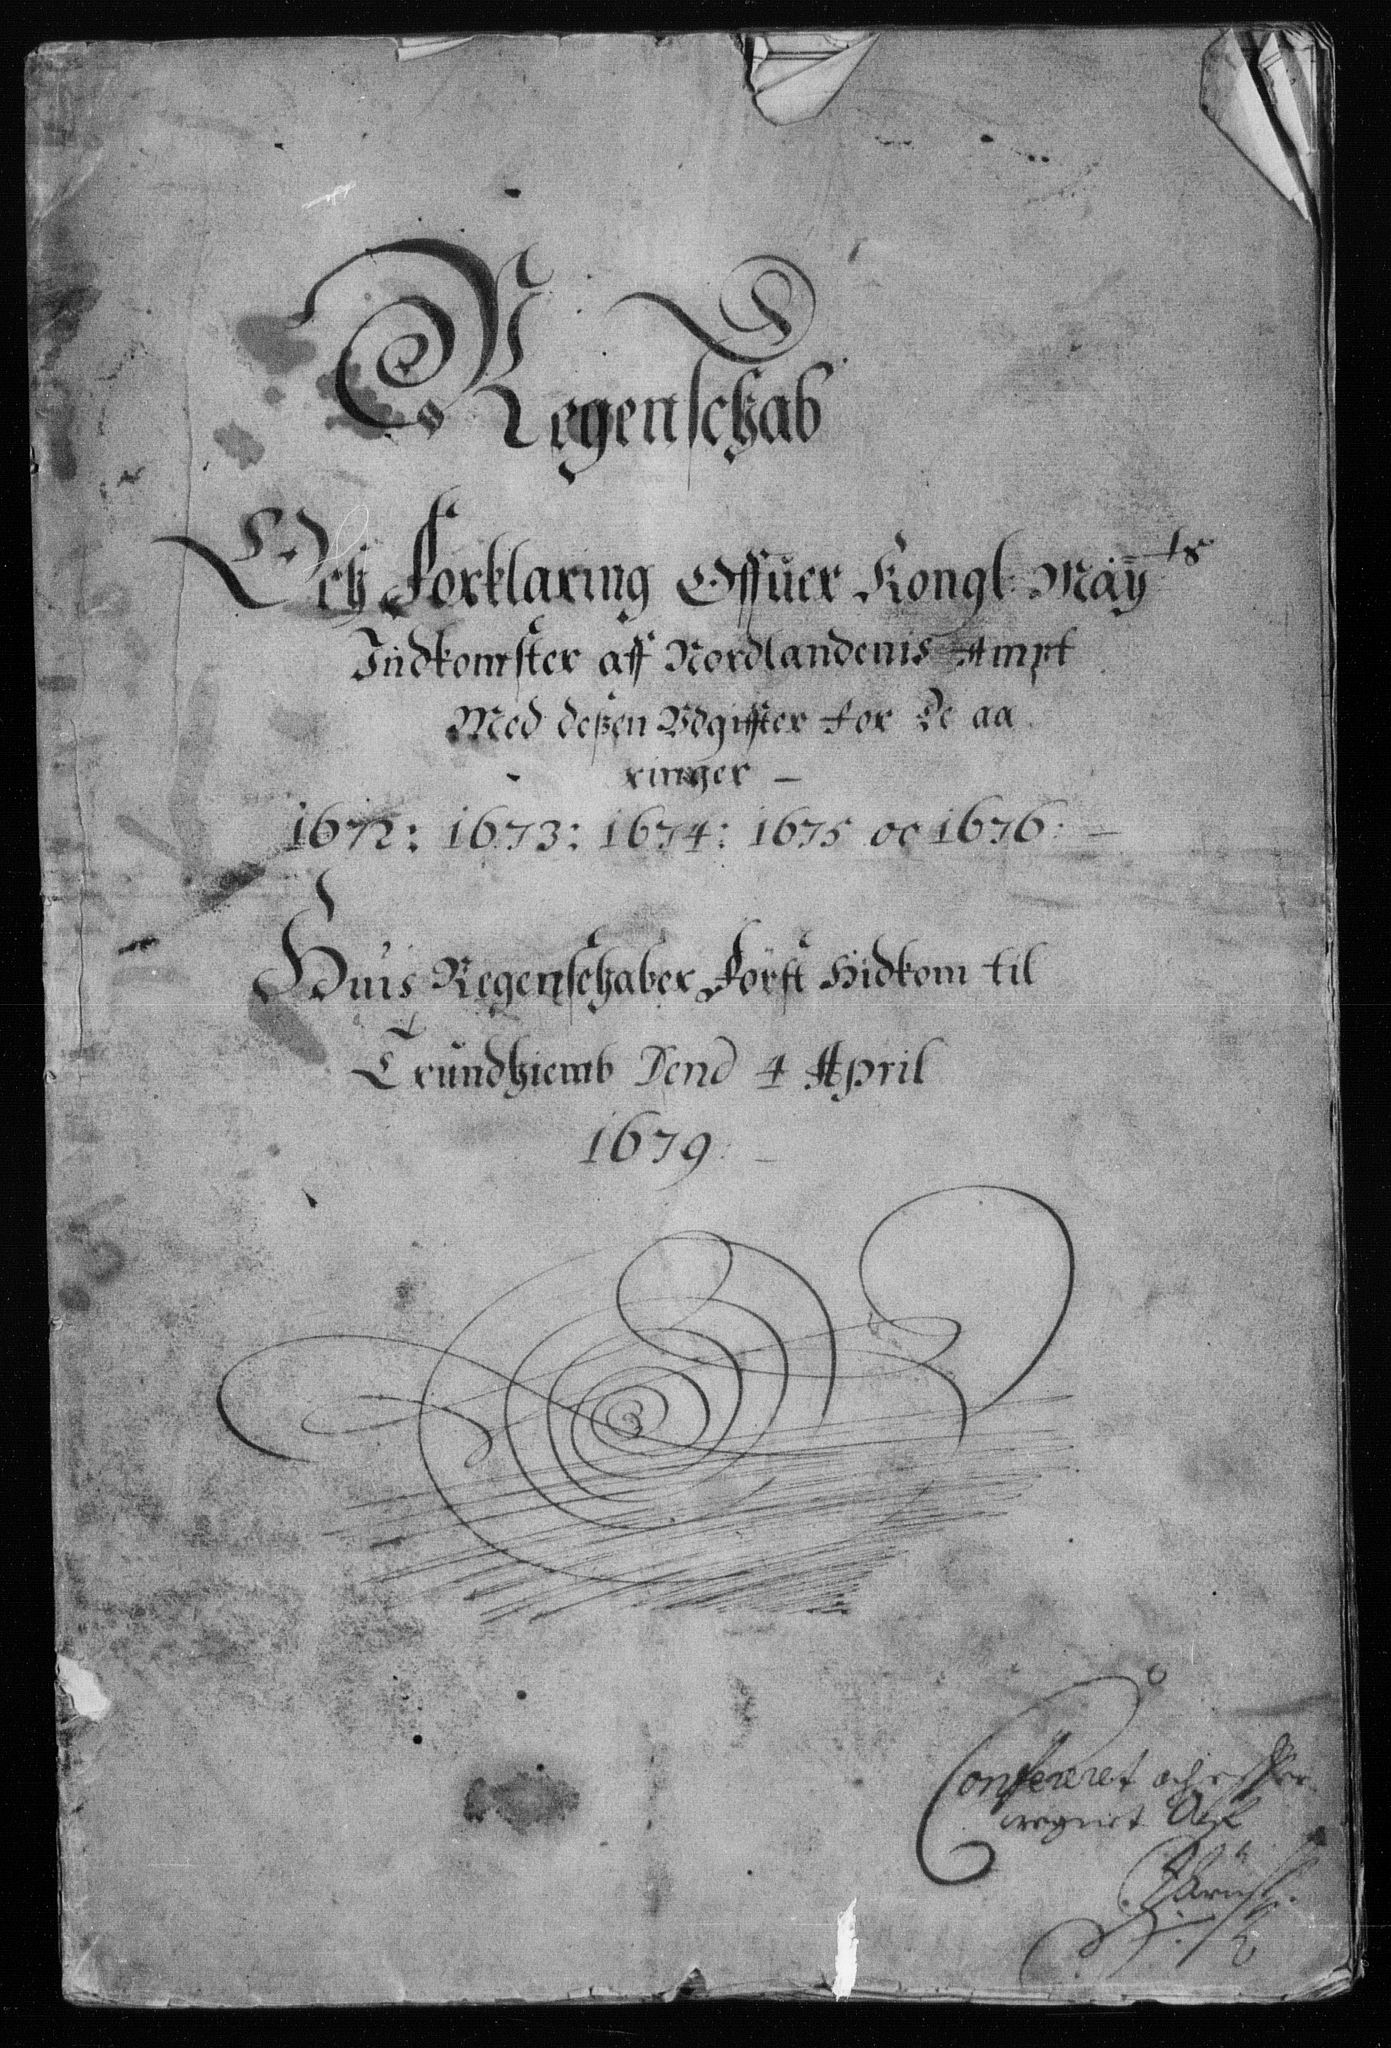 Regenschab
Och Forklaring Offuer Kongl: Maÿts
Indkomster aff Nordlandenis Ampt
Med deßen Vdgiffter for de aa
ringer —
1672: 1673: 1674: 1675 oc 1676: —
Huis Regenschaber Först Hidkom til
Trundhiemb Dend 4 April
1679. —
Confereret och effter
regnet Aff